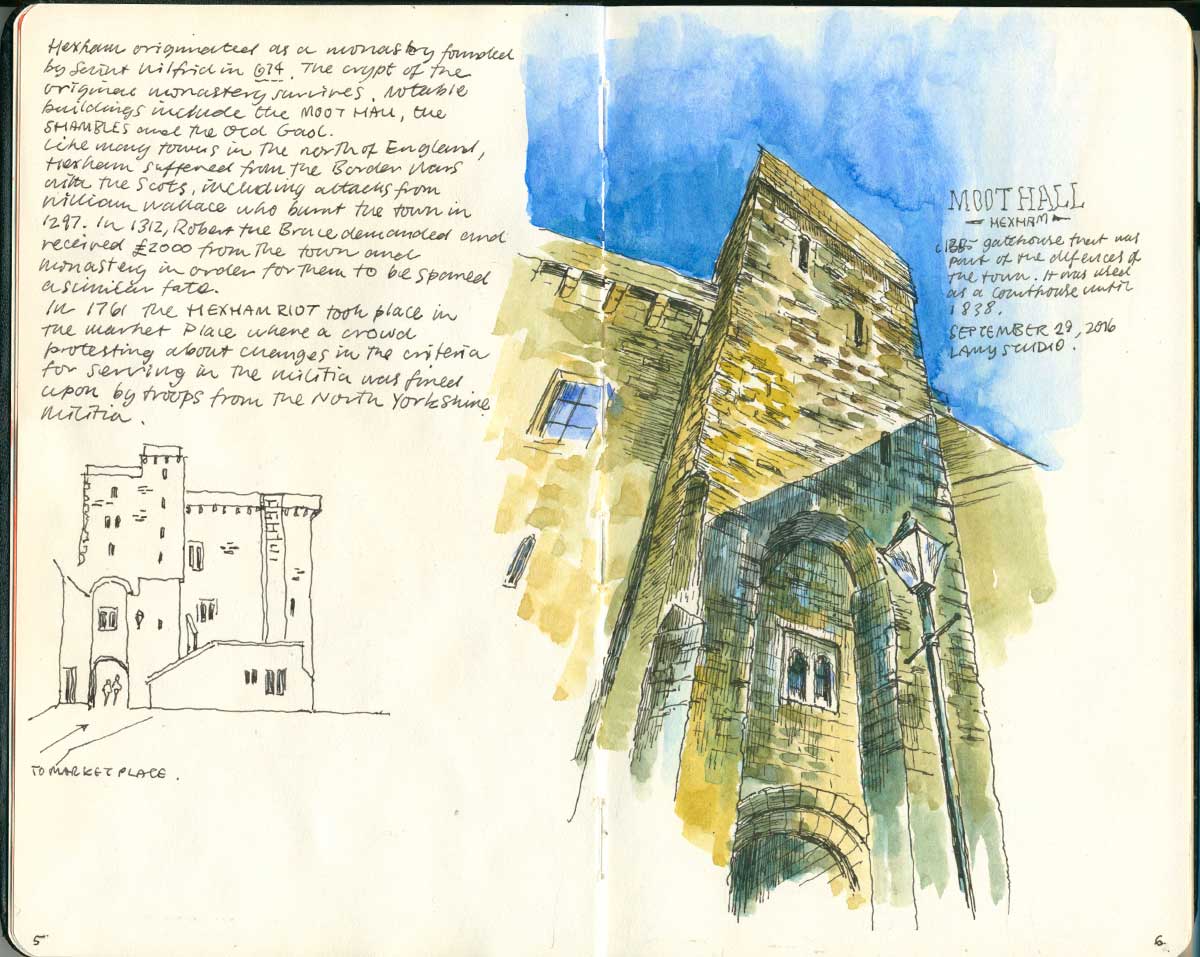 Hexham originated as a monastery founded
by Saint Wilfrid in 674. The crypt of the
original monastery survives. Notable
buildings include the MOOT HALL, the
SHAMBLES and the Old Gaol.
Like many towns in the north of England,
Hexham suffered from the Border Wars
with the Scots, including attacks from
William Wallace who burnt the town in
1297. In 1312, Robert the Bruce demanded and
received £2000 from the town and
monastery in order for them to be spared
a similar fate.
In 1761 the HEXHAM RIOT took place in
the market Place where a crowd
protesting about changes in the criteria
for serving in the militia was fired
upon by troops from the North Yorkshire
Militia.
TO MARKET PLACE.
5
MOOT HALL
HEXHAM
c. gatehouse that was
part of the defences of
the town. It was used
as a courthouse until
1838.
SEPTEMBER 29, 2016
LAMY STUDIO.
6